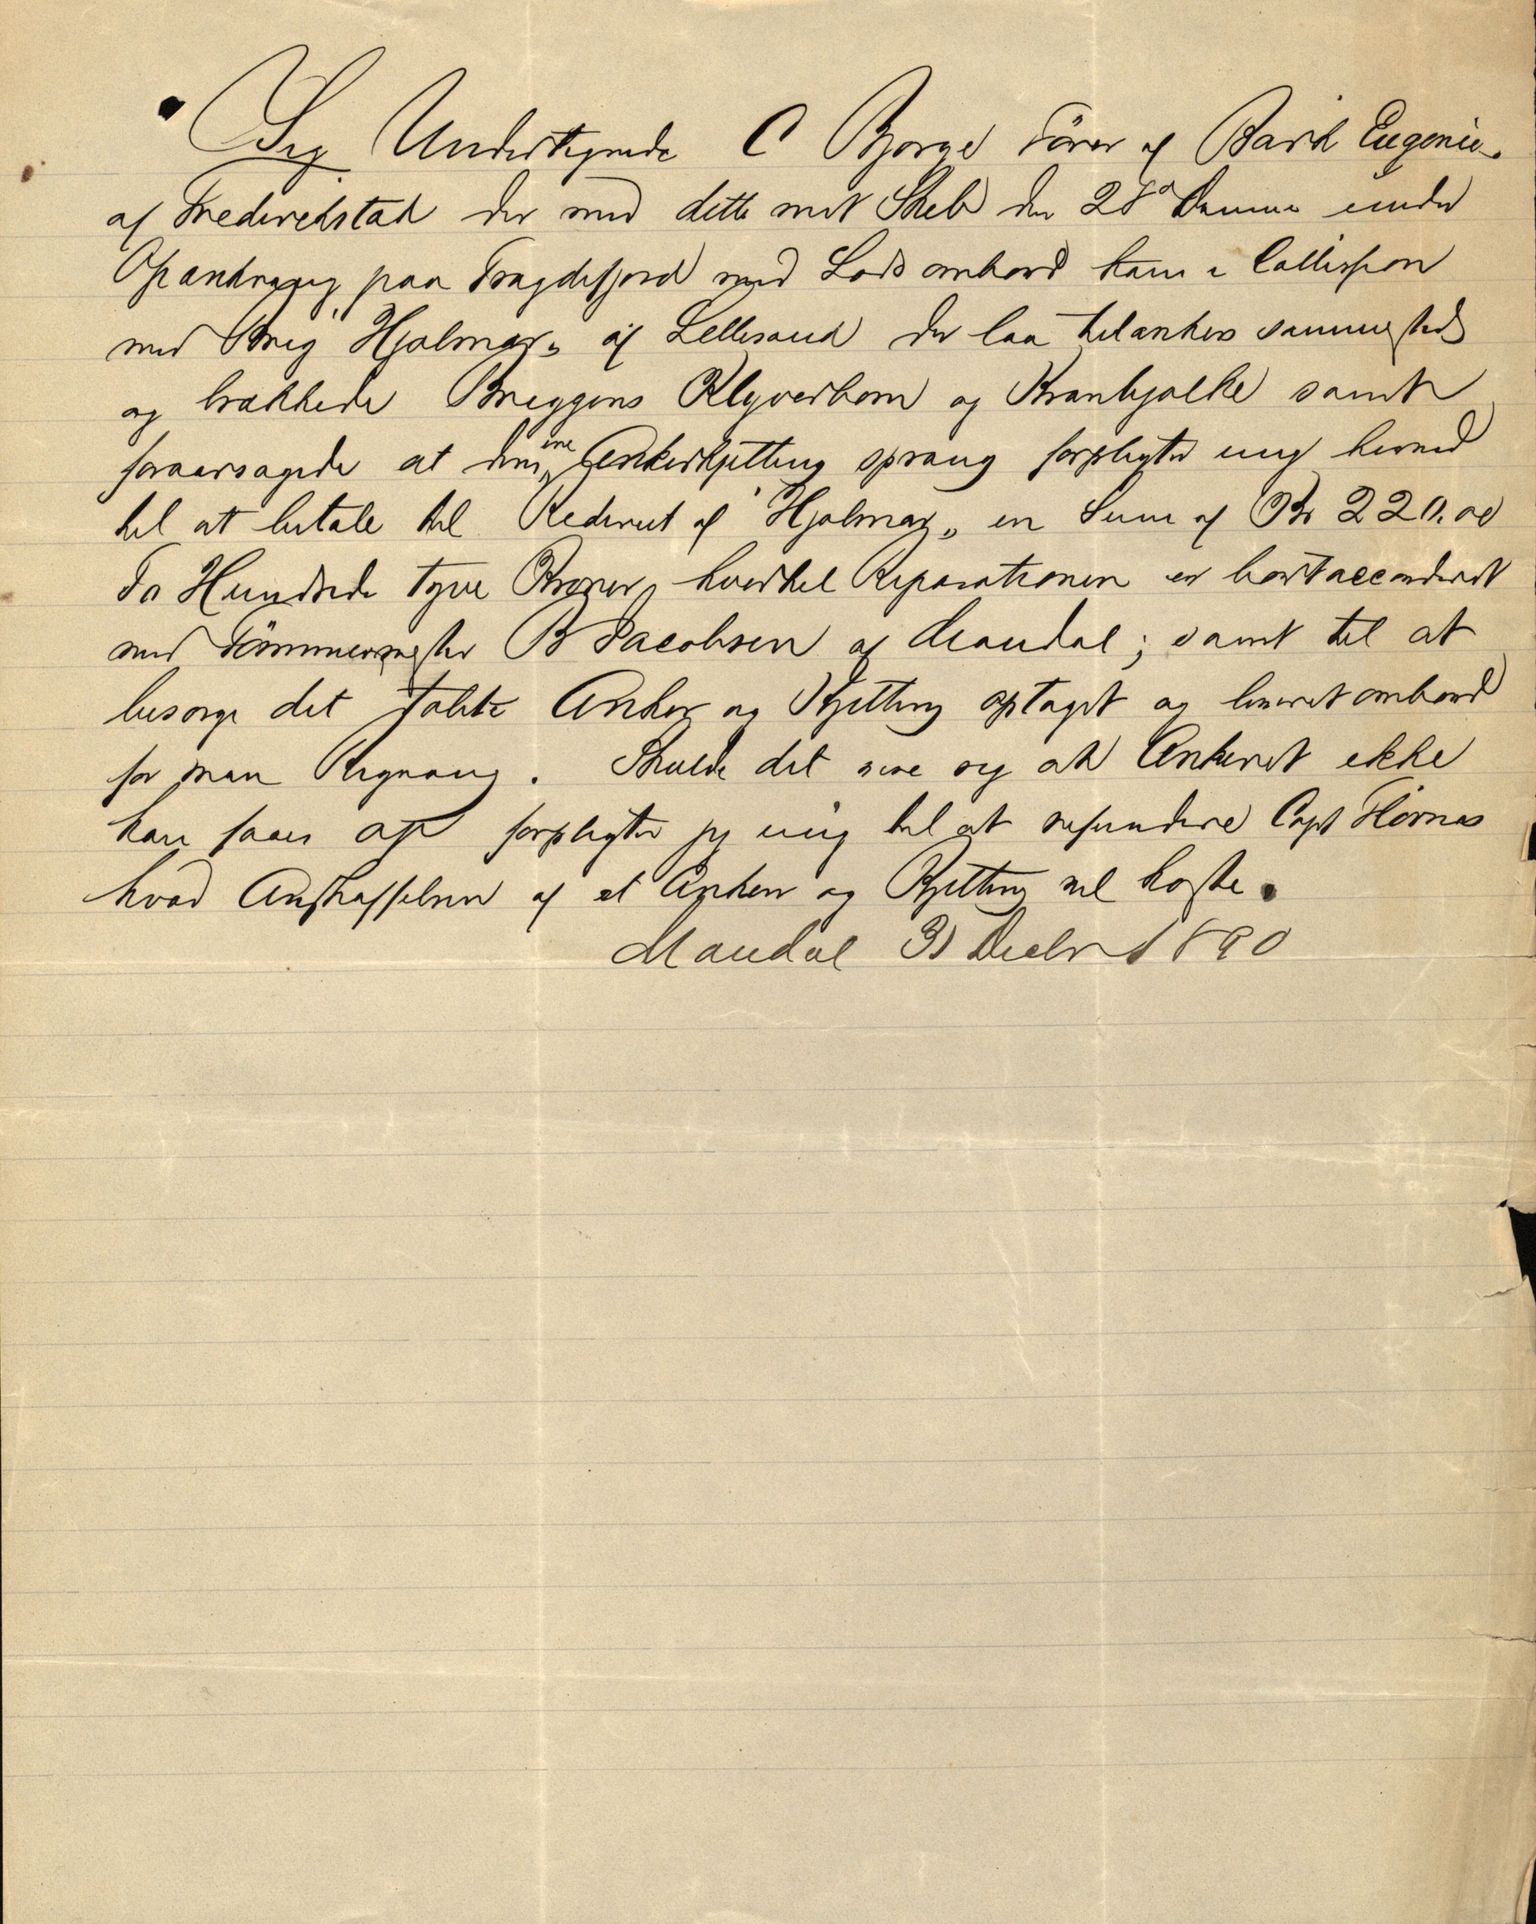 Jeg Undertegnede C Bjorge Förer af Bark Eugenie„
af Frederikstad der med dette mit Skib den 28de Dennes under
Opankring paa Tragdefjord med Lods ombord kom i Collission
med Brig "Hjalmar„ af Lillesand der laa tilankers sammesteds
og brækkede Briggens Klyverbom og Kranbjælke samt
foraarsagede at dens ene Ankerkjetting sprang forpligter mig herved
til at betale til Rederiet af "Hjalmar„ en Sum af Kr 220.00
To Hundrede tyve Kroner, hvortil Reparationen er bortaccorderet
med Tömmermester B Jacobsen af Mandal; samt til at
besørge det tabte Anker og Kjetting optaget og leveret ombord
for min Regning. Skulde det vise sig at Ankeret ikke
kan faaes op forpligter jeg mig til at refundere Capt Hörnes
hvad Anskaffelsen af et Anker og Kjetting vil koste.
Mandal 31 Decbr 1890